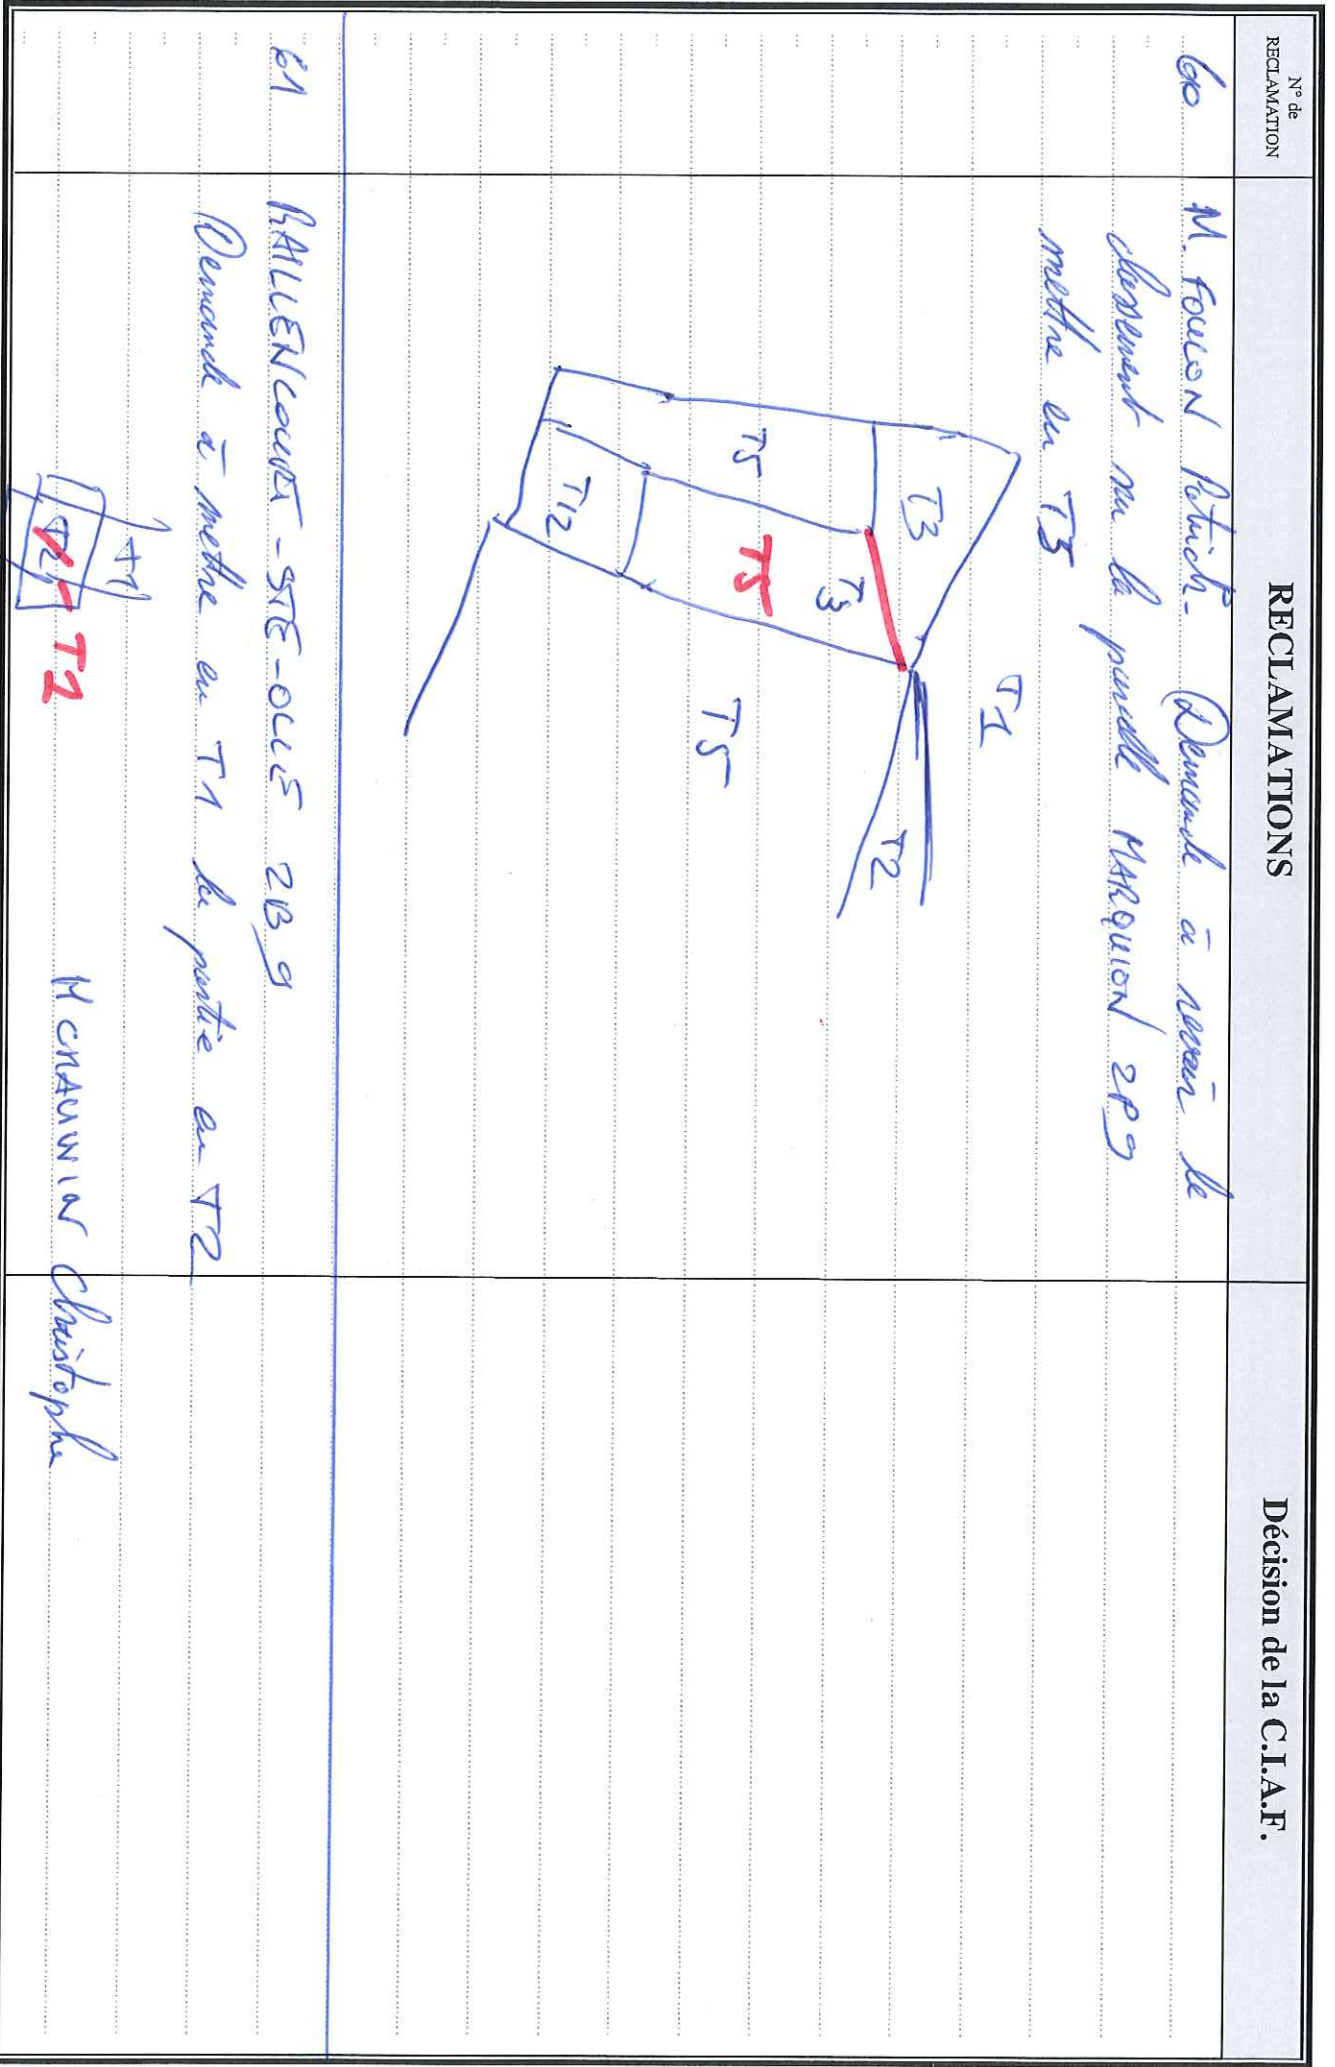 N° de
RECLAMATION
RECLAMATIONS
Décision de la C.I.A.F.
60
M. FOULON Patrick. Demande à revoir le
classement sur la parcelle MARQUION 2P9
mettre en T3
T1
T3
T2
T3
T5
T5
T5
T12
61
RAILLENCOURT-STE-OLLE 2B9
Demande à mettre en T1 la partie en T2
T1
T2
T2
Christophe